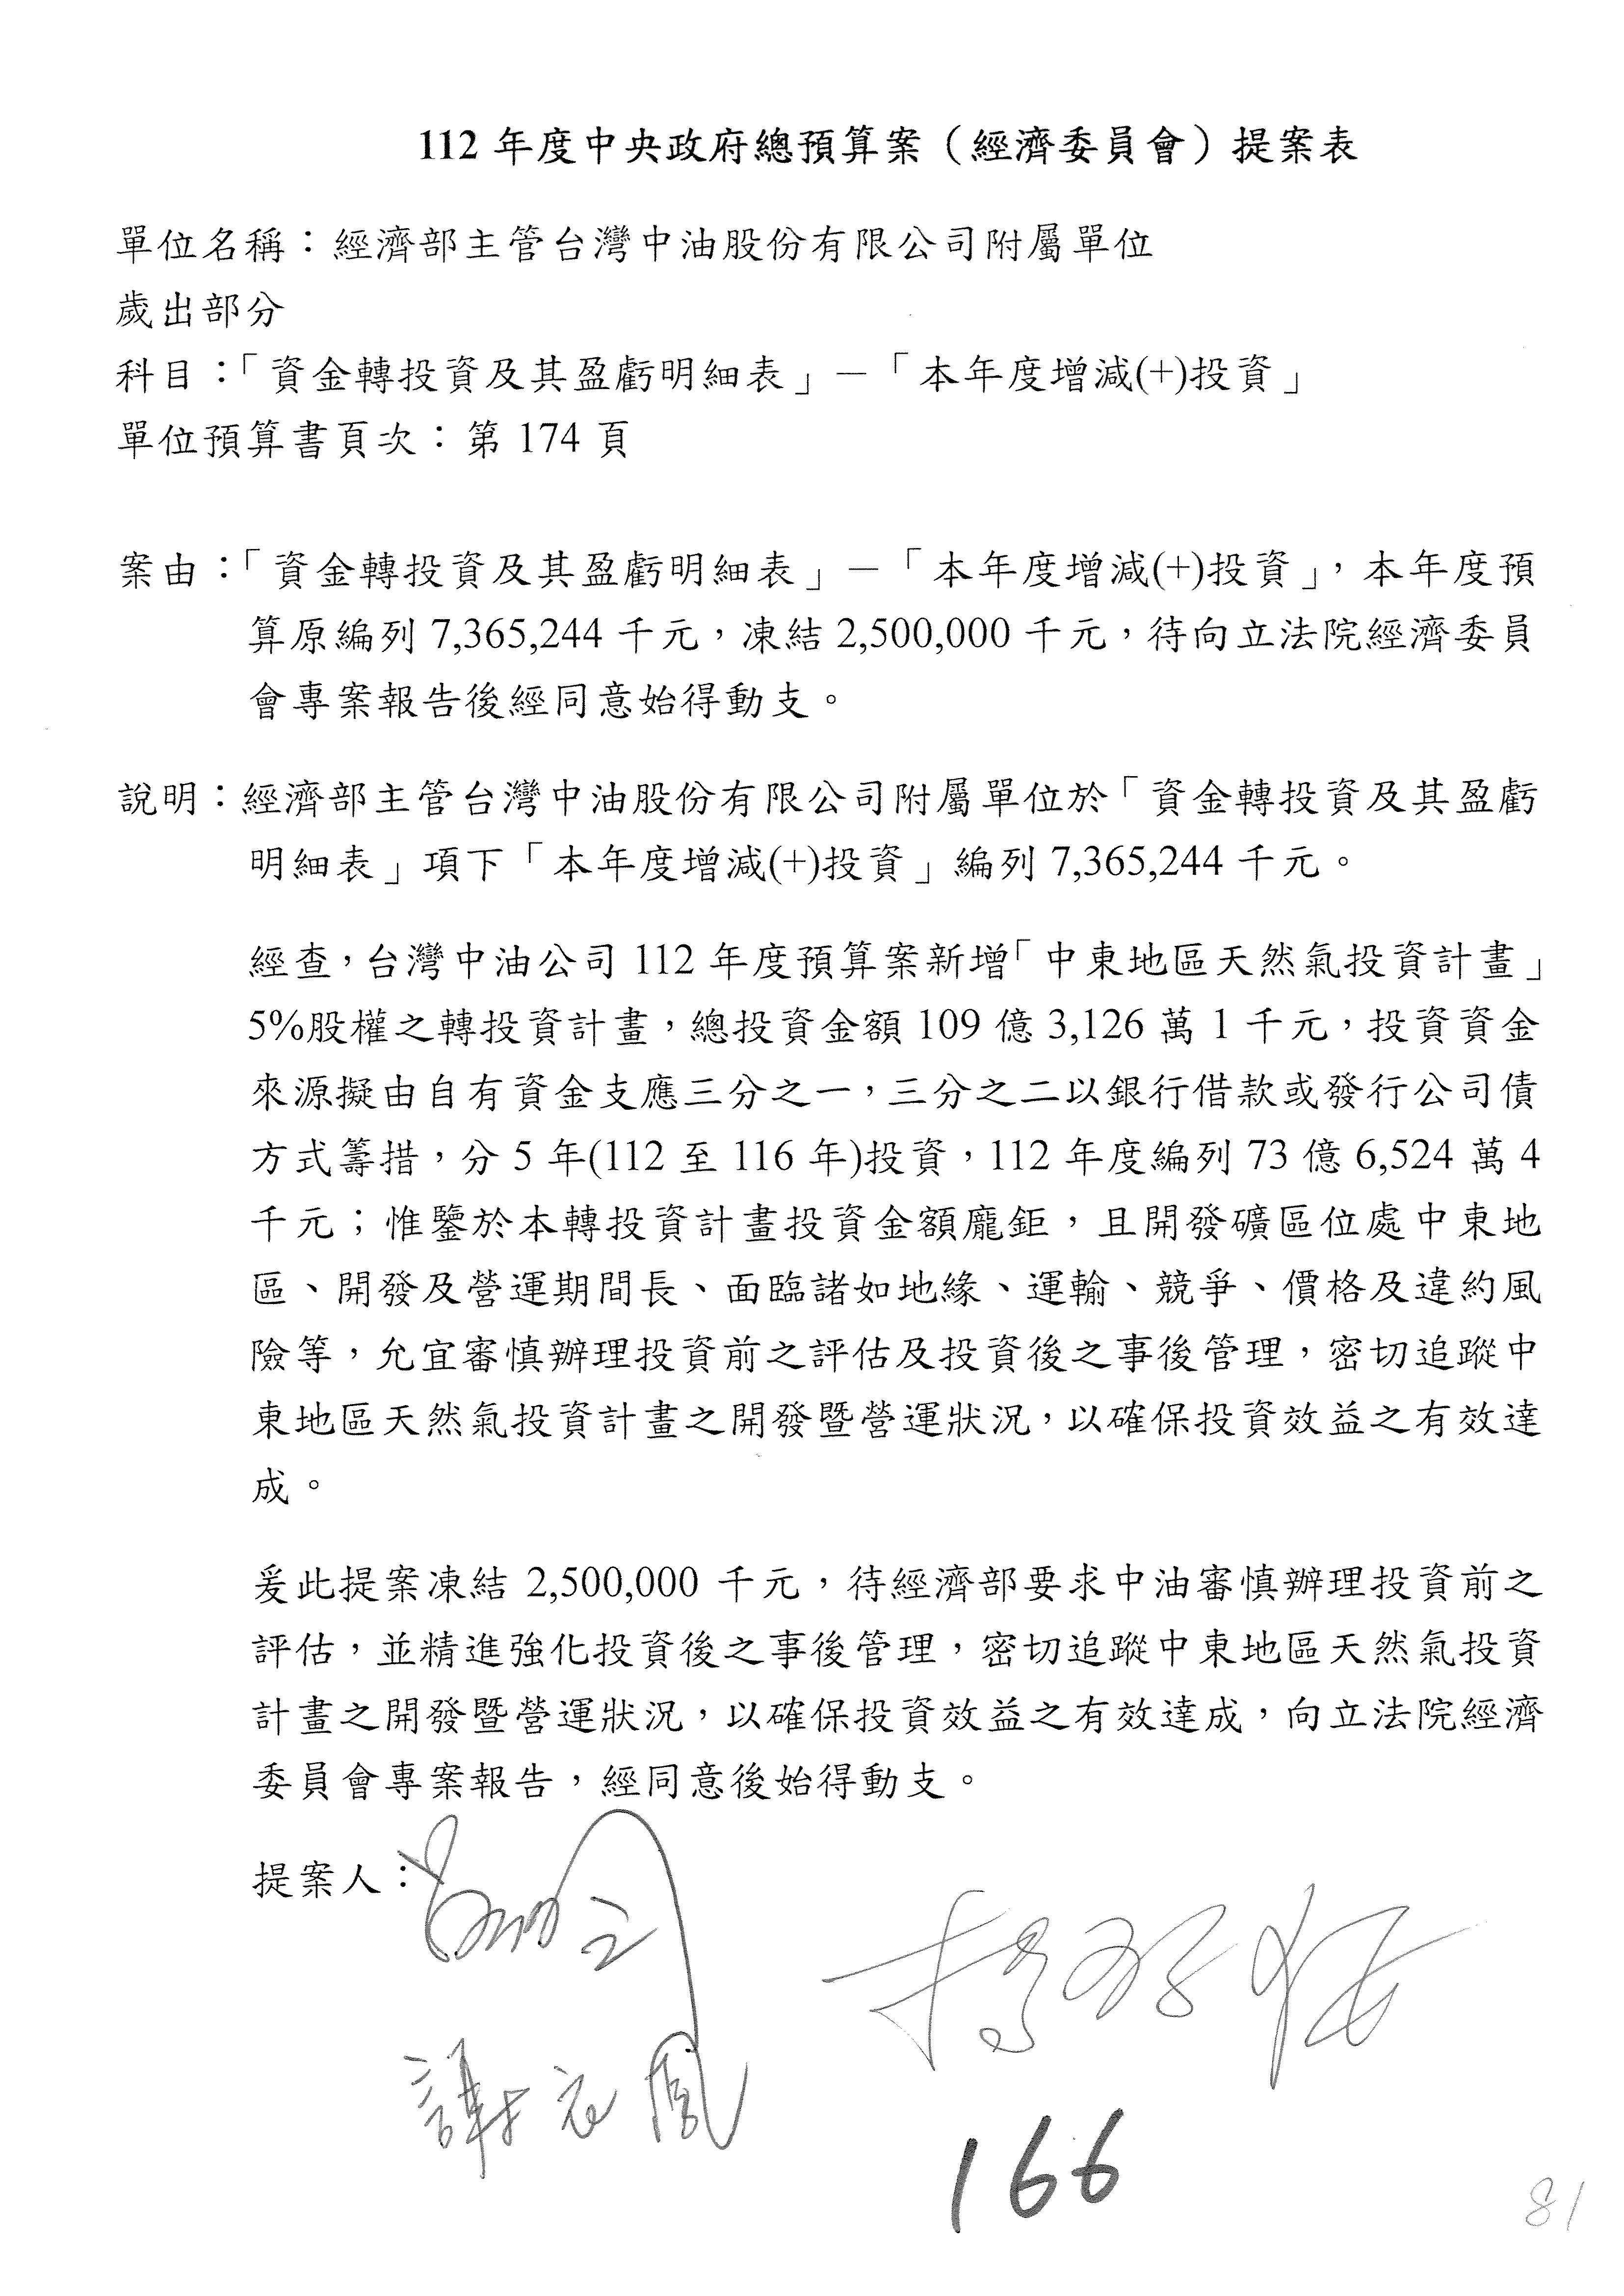 112 年度中央政府總預算案（經濟委員會）提案表
單位名稱：經濟部主管台灣中油股份有限公司附屬單位
歲出部分
科目：「資金轉投資及其盈虧明細表」－「本年度增減(+)投資」
單位預算書頁次：第 174 頁
案由：「資金轉投資及其盈虧明細表」－「本年度增減(+)投資」，本年度預
算原編列 7,365,244 千元，凍結 2,500,000 千元，待向立法院經濟委員
會專案報告後經同意始得動支。
說明：經濟部主管台灣中油股份有限公司附屬單位於「資金轉投資及其盈虧
明細表」項下「本年度增減(+)投資」編列 7,365,244 千元。
經查，台灣中油公司 112 年度預算案新增「中東地區天然氣投資計畫」
5%股權之轉投資計畫，總投資金額 109 億 3,126 萬 1 千元，投資資金
來源擬由自有資金支應三分之一，三分之二以銀行借款或發行公司債
方式籌措，分 5 年(112 至 116 年)投資，112 年度編列 73 億 6,524 萬 4
千元；惟鑒於本轉投資計畫投資金額龐鉅，且開發礦區位處中東地
區、開發及營運期間長、面臨諸如地緣、運輸、競爭、價格及違約風
險等，允宜審慎辦理投資前之評估及投資後之事後管理，密切追蹤中
東地區天然氣投資計畫之開發暨營運狀況，以確保投資效益之有效達
成。
爰此提案凍結 2,500,000 千元，待經濟部要求中油審慎辦理投資前之
評估，並精進強化投資後之事後管理，密切追蹤中東地區天然氣投資
計畫之開發暨營運狀況，以確保投資效益之有效達成，向立法院經濟
委員會專案報告，經同意後始得動支。
提案人：
謝衣鳳
166
81